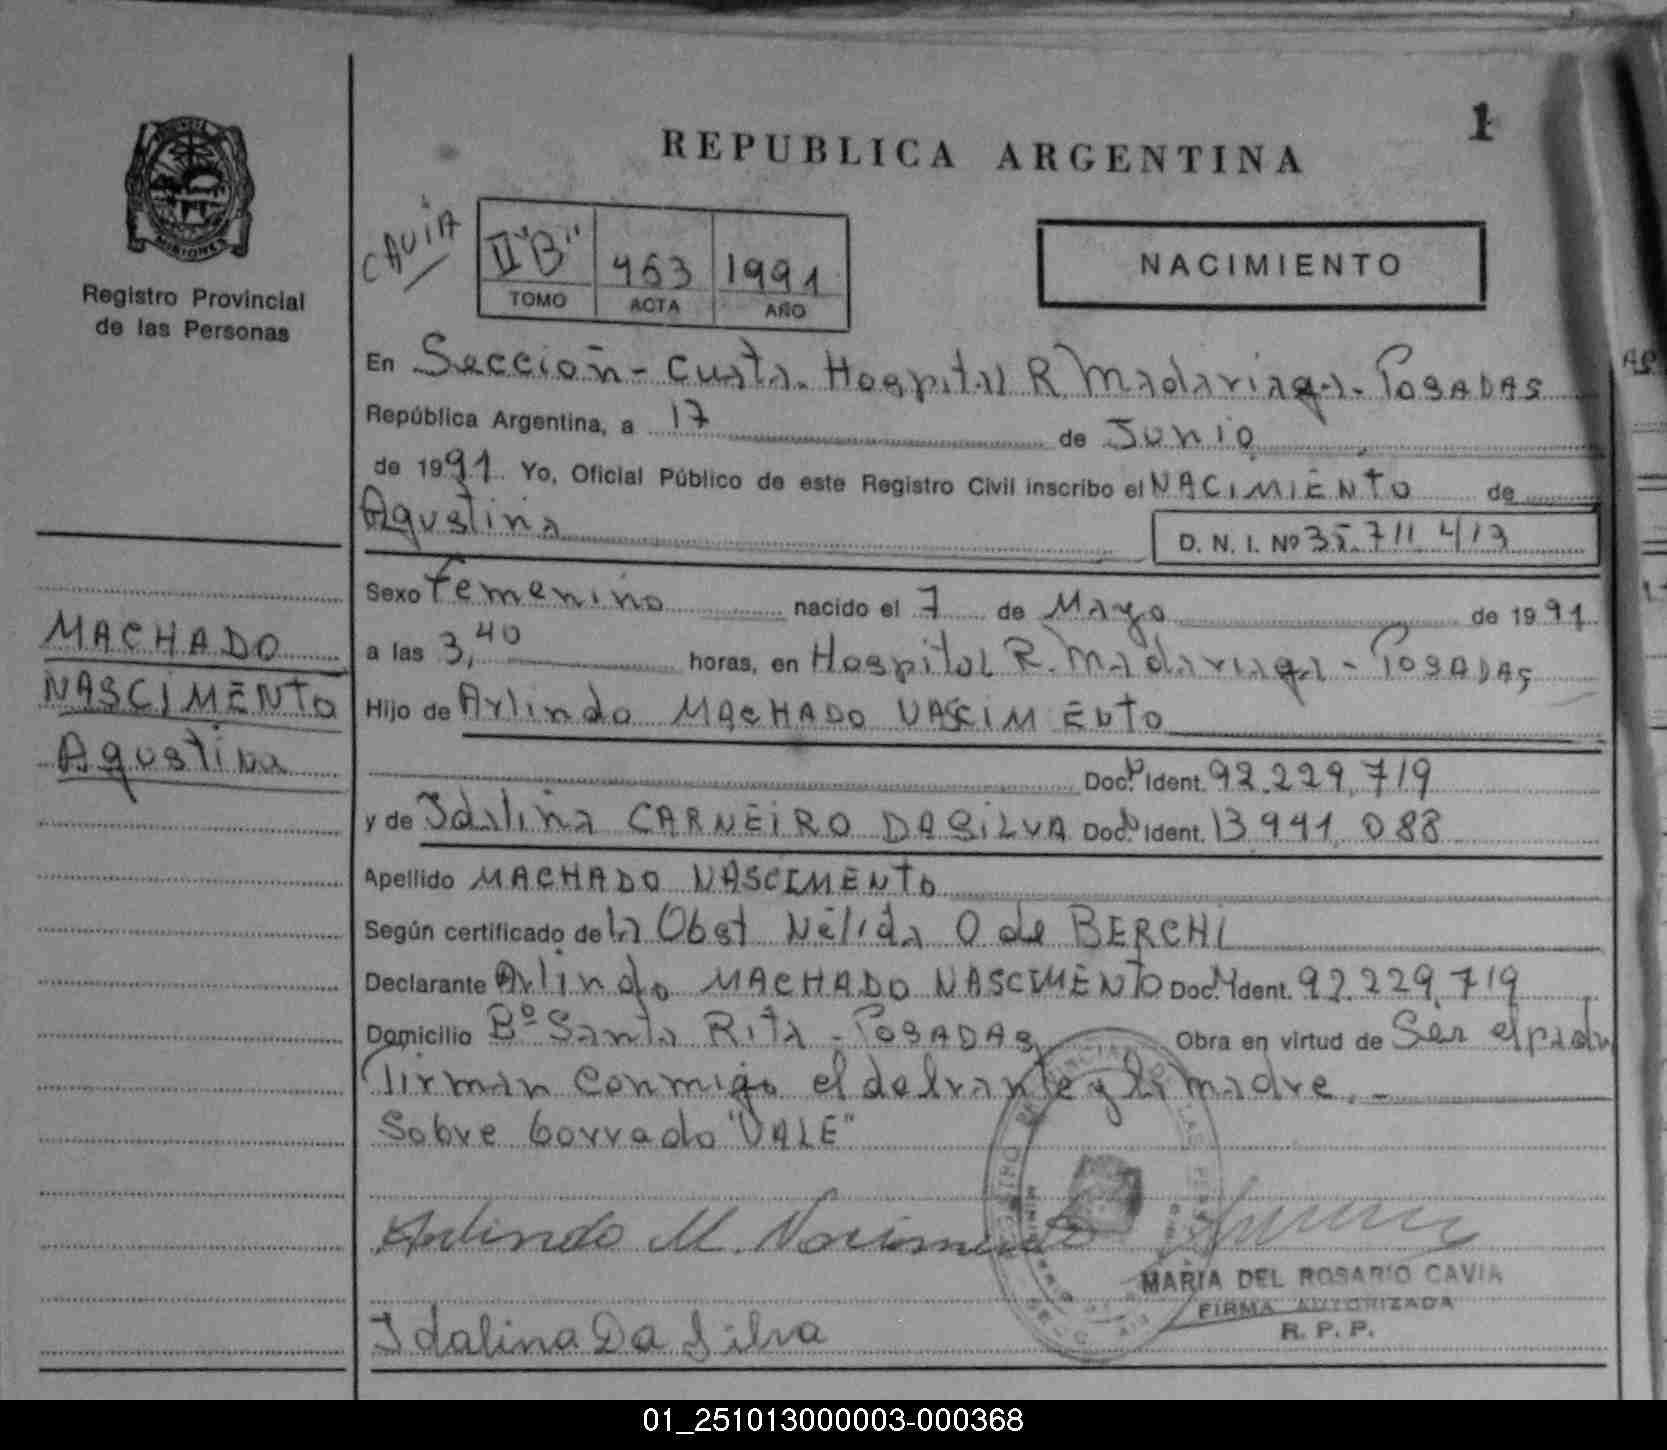 1
REPUBLICA ARGENTINA
MISIONES
Registro Provincial
de las Personas
CAVIA
II "B" 463 1991
TOMO ACTA AÑO
NACIMIENTO
En Sección - Cuarta - Hospital R. Madariaga - POSADAS
República Argentina, a 17 de Junio
de 1991. Yo, Oficial Público de este Registro Civil inscribo el NACIMIENTO de
Agustina
D. N. I. Nº 35.711.413
Sexo Femenino nacido el 7 de Mayo de 1991
a las 3,40 horas, en Hospital R. Madariaga - POSADAS
Hijo de Arlindo MACHADO NASCIMENTO
Doc. Ident. 92.229.719
y de Idalina CARNEIRO DA SILVA Doc. Ident. 13.941.088
MACHADO
NASCIMENTO
Agustina
Apellido MACHADO NASCIMENTO
Según certificado de la Obst Nélida O de BERCHI
Declarante Arlindo MACHADO NASCIMENTO Doc. Ident. 92.229.719
Domicilio Bº Santa Rita - POSADAS Obra en virtud de Ser el padre
Firman conmigo el delrante y la madre. -
Sobre borrado "VALE"
Arlindo M. Nascimento
MARIA DEL ROSARIO CAVIA
FIRMA AUTORIZADA
R. P. P.
Idalina Da Silva
01_251013000003-000368